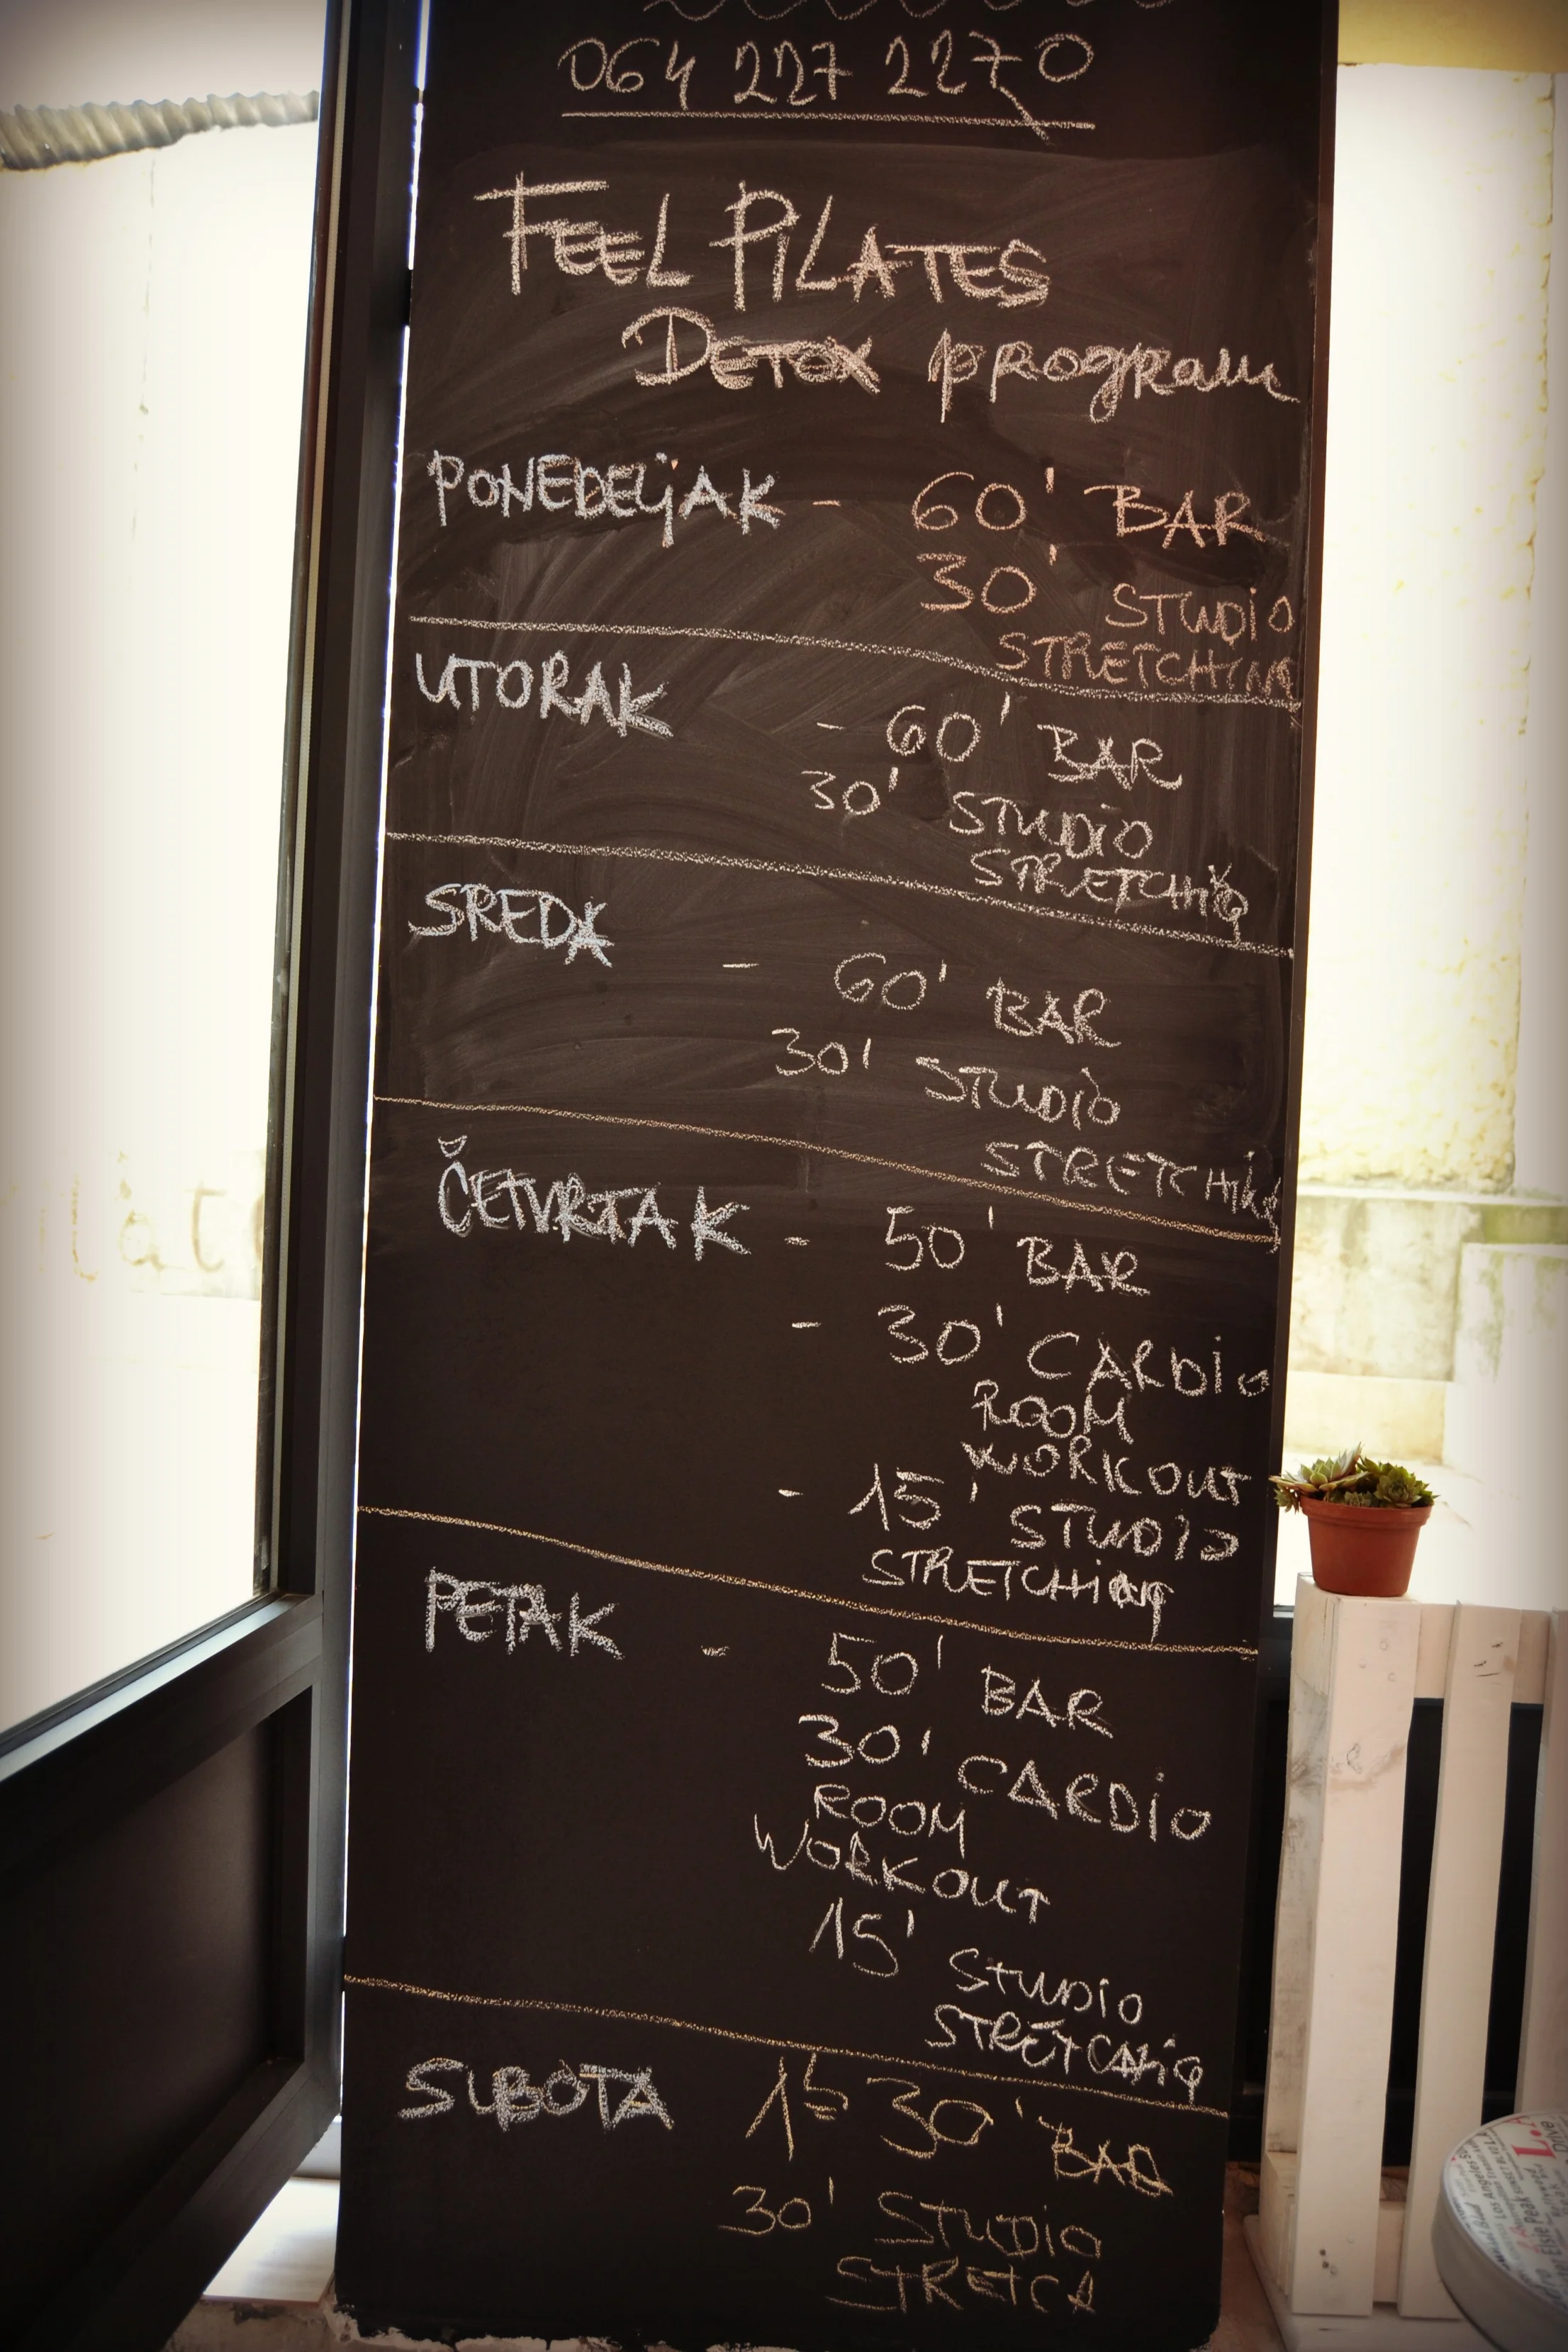 064 227 2270
FEEL PILATES
DETOX program
PONEDELJAK - 60' BAR
30' STUDIO
STRETCHING
UTORAK - 60' BAR
30' STUDIO
STRETCHING
SREDA - 60' BAR
30' STUDIO
STRETCHING
ČETVRTAK - 50' BAR
- 30' CARDIO
ROOM
WORKOUT
- 15' STUDIO
STRETCHING
PETAK - 50' BAR
30' CARDIO
ROOM
WORKOUT
15' STUDIO
STRETCHING
SUBOTA 1h 30' BAR
30' STUDIO
STRETCH
L.A
Los Angeles
Elsie Peak
Drive